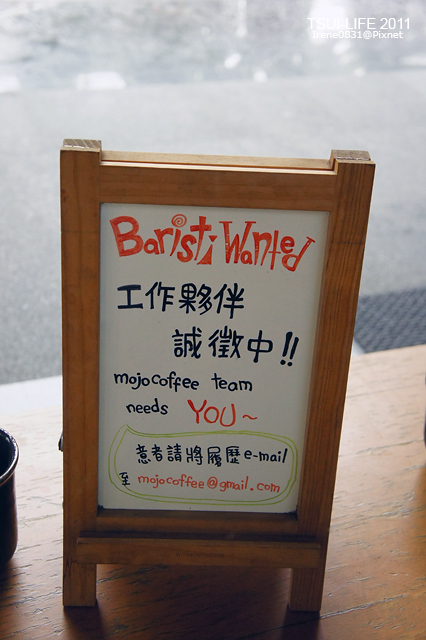 TSUI-LIFE 2011
Irene0831@Pixnet
Baristi Wanted
工作夥伴
誠徵中!!
mojocoffee team
needs YOU~
意者請將履歷e-mail
至 mojocoffee@gmail.com